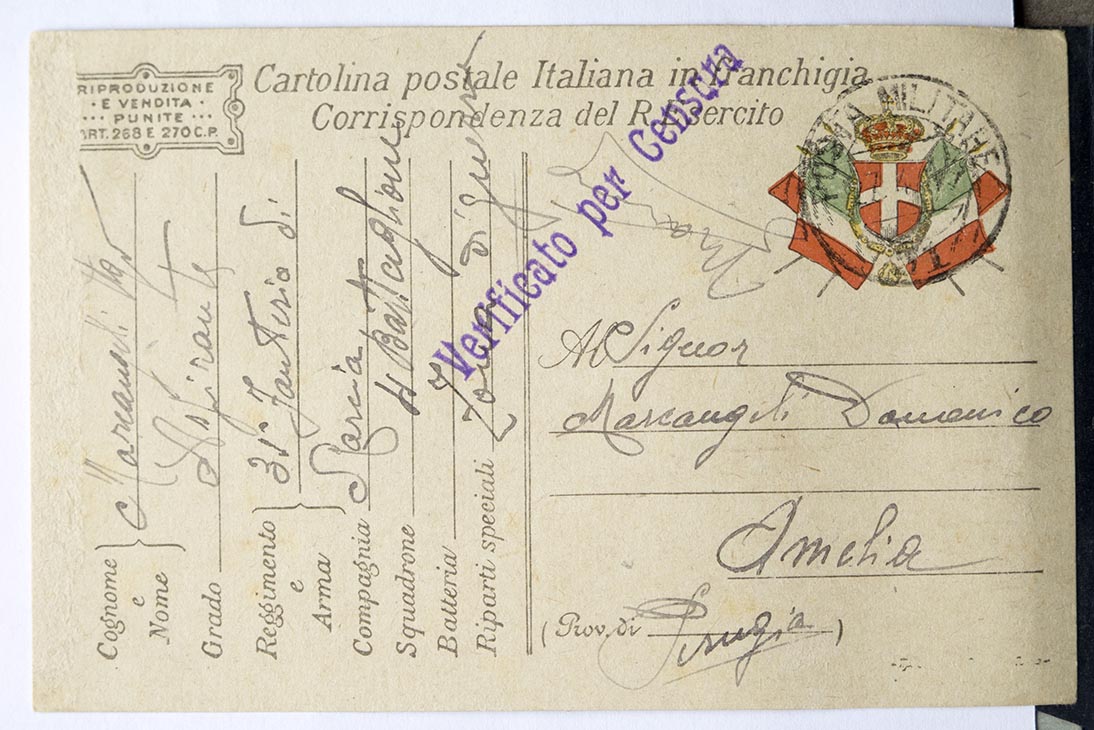 RIPRODUZIONE
E VENDITA
PUNITE
ART. 268 E 270 C.P.
Cartolina postale Italiana in franchigia
Corrispondenza del R. Esercito
POSTA MILITARE
Verificato per Censura
Cognome e Nome Marcangeli
Grado Aspirante
Reggimento e Arma 31° Fanteria di
Compagnia Marcia
Squadrone 4 Battaglione
Batteria
Riparti speciali Zona di guerra
Al Signor
Marcangeli Domenico
Amelia
(Prov. di Perugia)